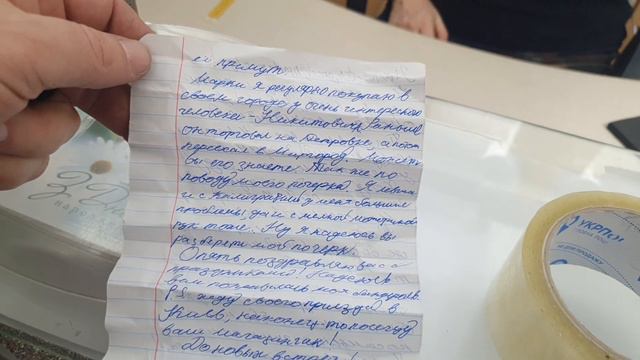 ей примут.
Марки я регулярно покупаю в
своём городе у очень интересного
человека - Никитовича. Раньше
он торговал на Петровке, а пока
переехал в Миргород. Может
вы его знаете. Так же по
поводу моего почерка. Я левша
и с каллиграфией у меня большие
проблемы, да и с мелкой моторикой
рук тоже. Ну я надеюсь вы
разберёте мой почерк.
Опять поздравляю вас с
праздниками! Надеюсь
вам понравилась моя бандероль.
P.S. жду своего приезда в
Киев, наконец-то посещу
ваш магазинчик!
До новых встреч!
УКРПОШ